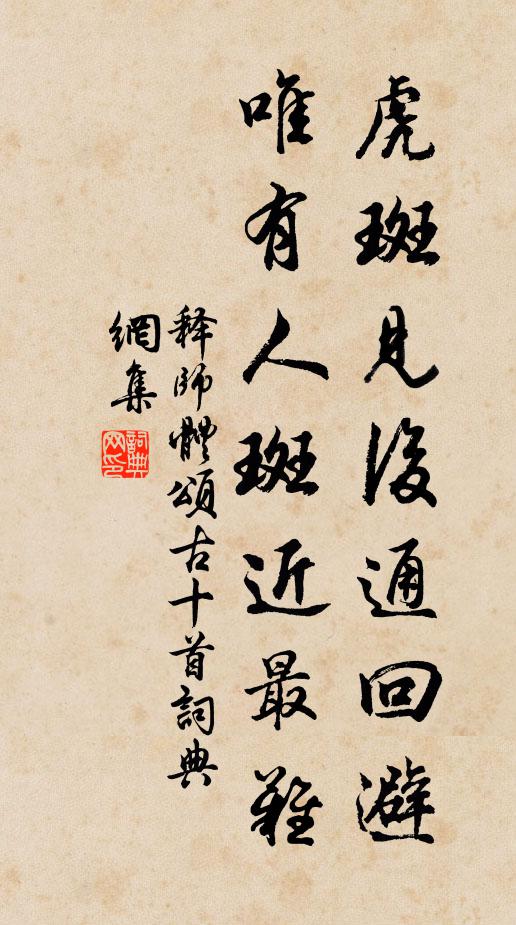 虎斑見後通回避
唯有人斑近最難
释師體頌古十首詞典
網集
詞典
网印